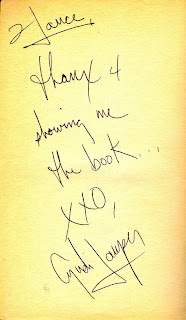 2 Lance,
thanx 4
showing me
the book...
XXO,
Cyndi Lauper